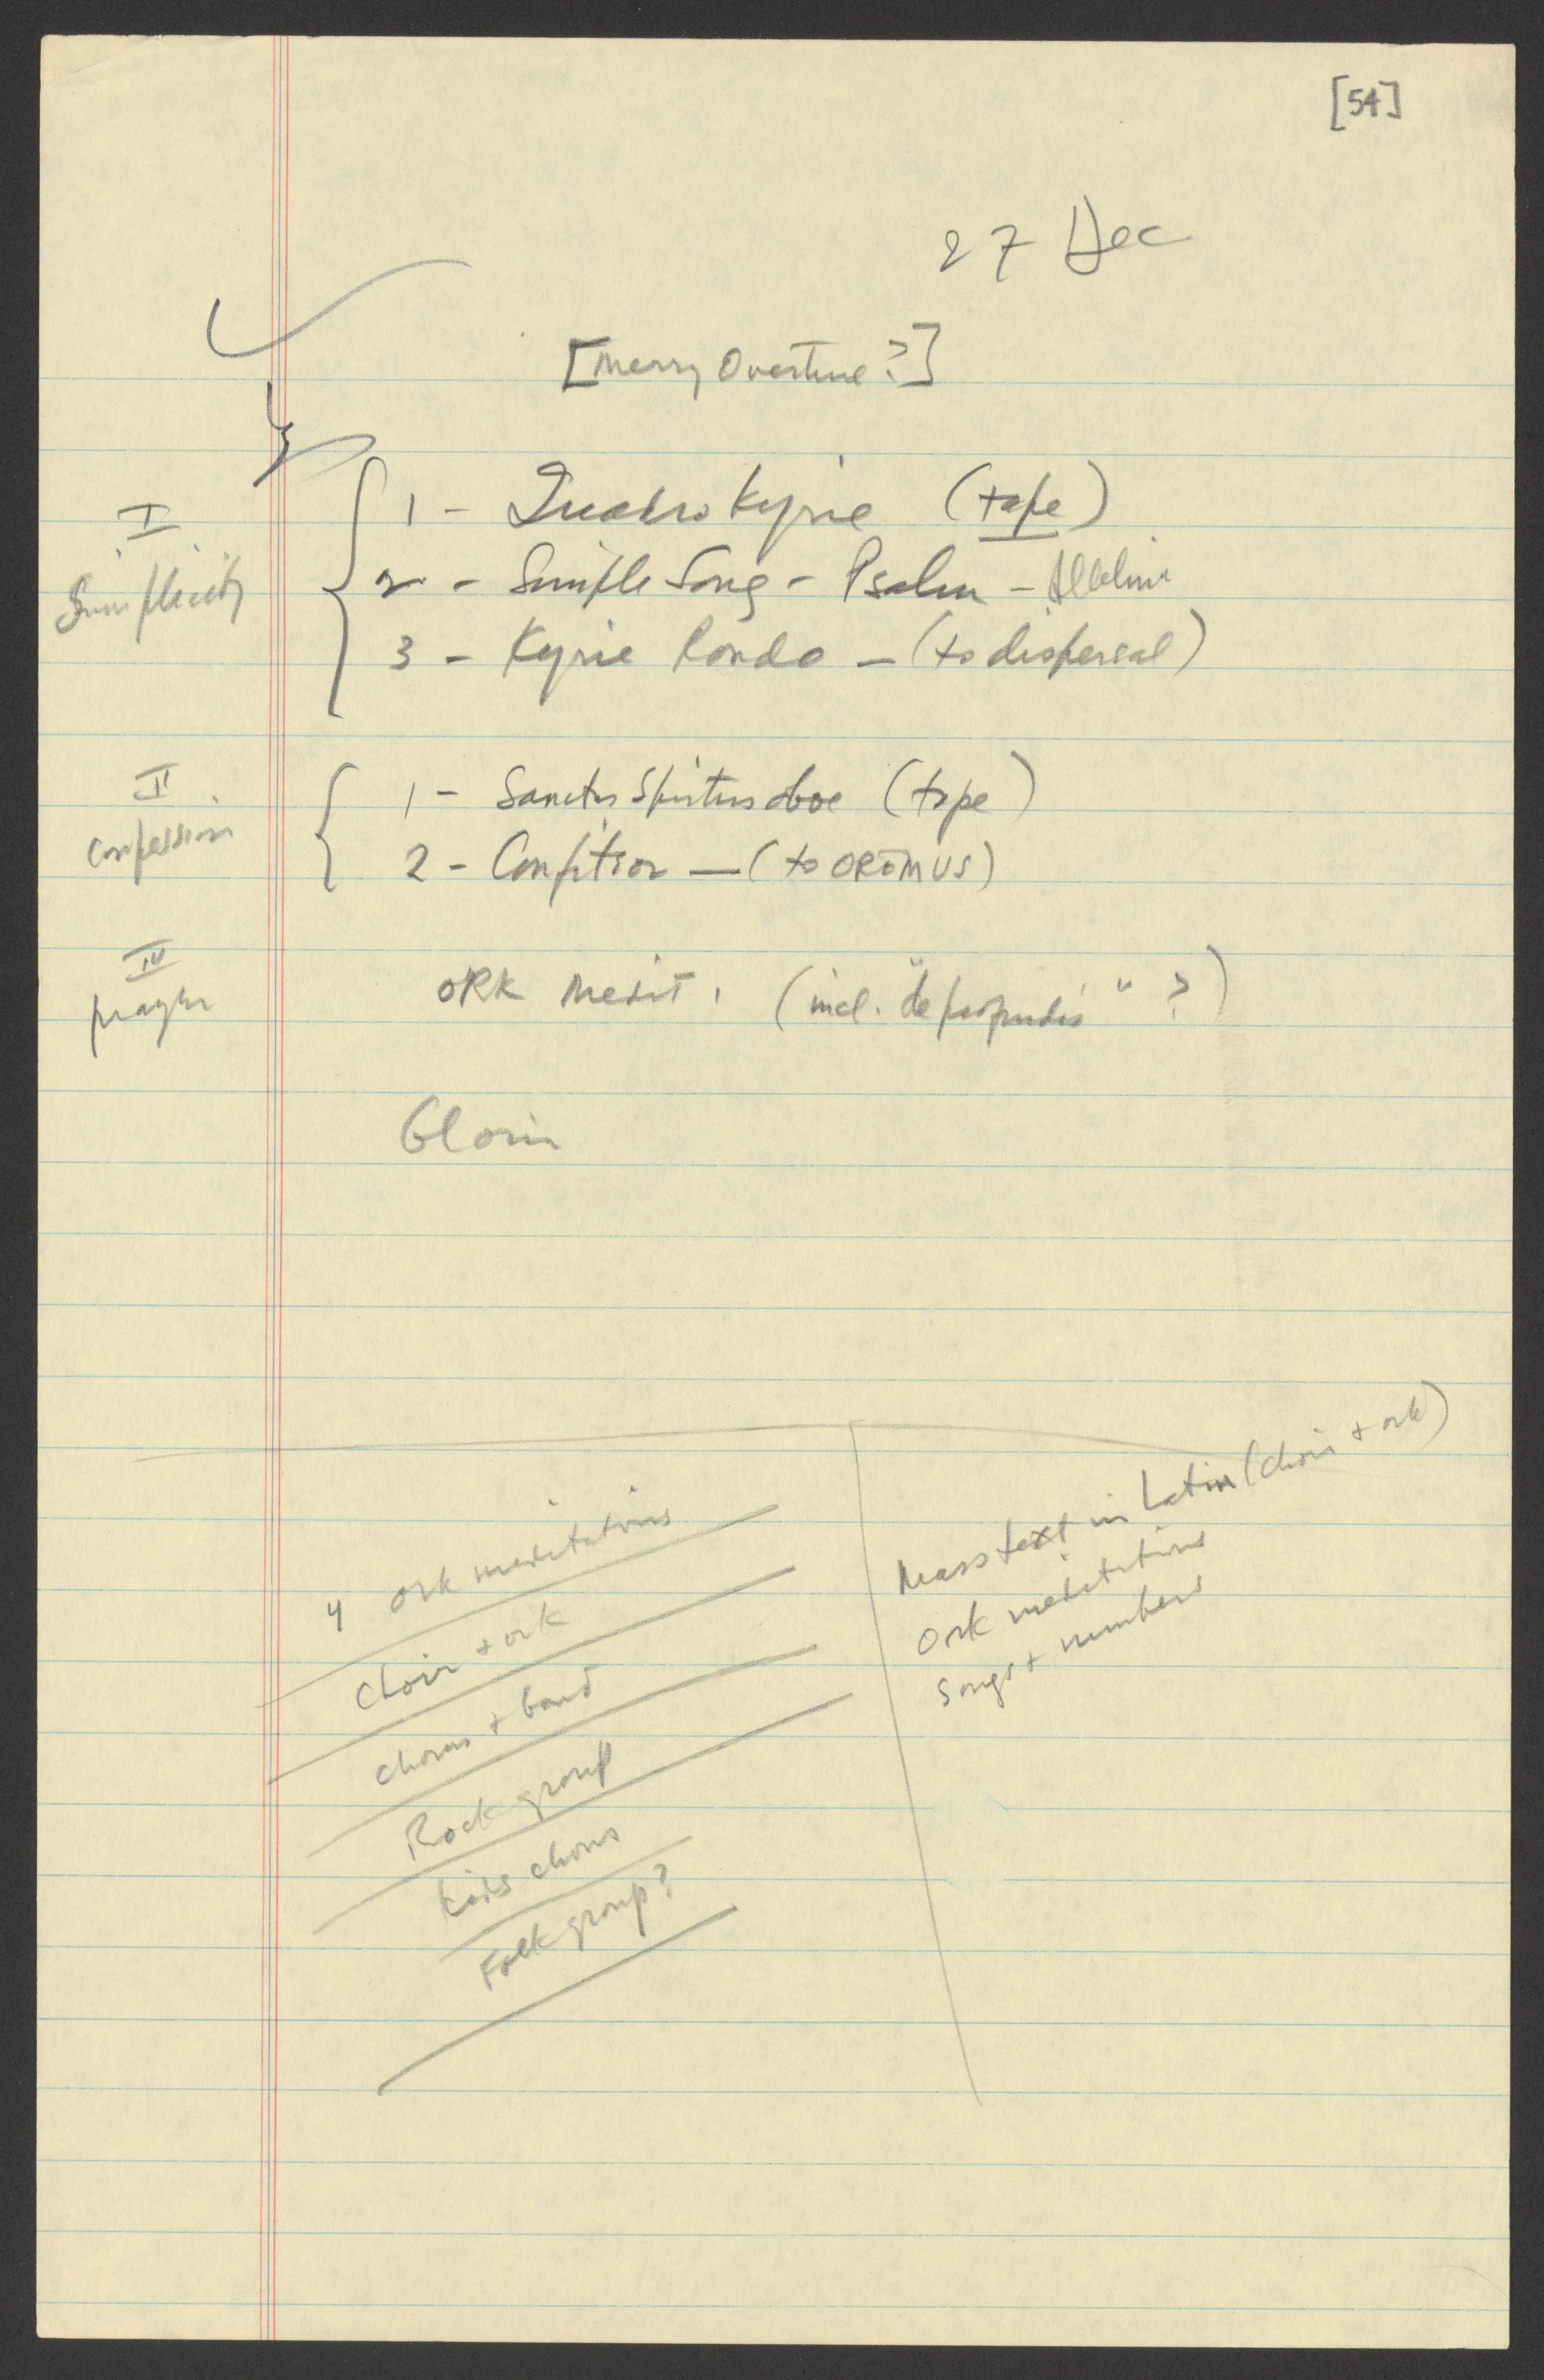 [54]
27 Dec
[Merry Overture?]
I
Simplicity
1 - Quadro Kyrie (tape)
2 - Simple Song - Psalm - Alleluia
3 - Kyrie Rondo - (to dispersal)
II
Confession
1 - Sanctus Spiritus oboe (tape)
2 - Confiteor - (to OREMUS)
prayer
ORK Medit. (incl. "de profundis" ?)
Gloria
4 ork meditations
choir + ork
chorus + band
Rock group
kids chorus
Folk group?
Mass text in Latin (choir + ork)
Ork meditations
Songs + numbers